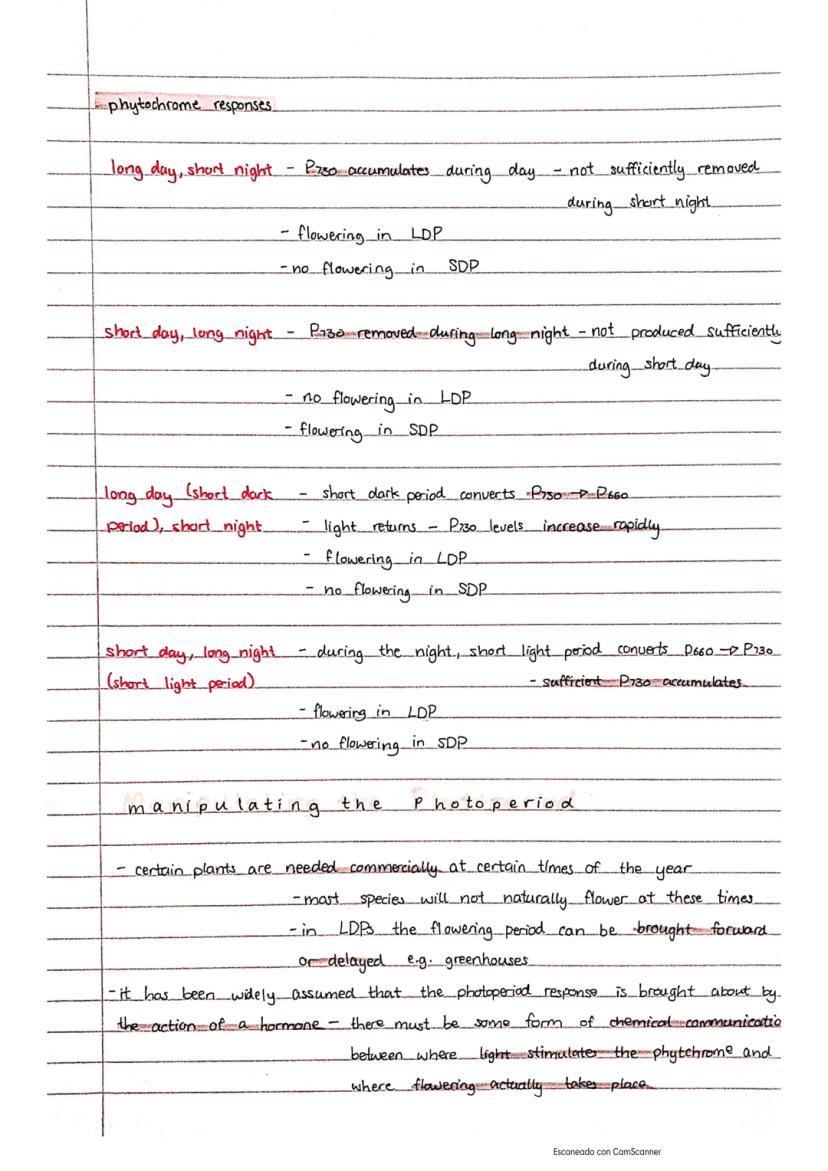 phytochrome responses
long day, short night - P730 accumulates during day - not sufficiently removed
during short night
- flowering in LDP
- no flowering in SDP
short day, long night - P730 removed during long night - not produced sufficiently
during short day
- no flowering in LDP
- flowering in SDP
long day (short dark - short dark period converts P730 → P660
period), short night - light returns - P730 levels increase rapidly
- flowering in LDP
- no flowering in SDP
short day, long night - during the night, short light period converts P660 → P730
(short light period) - sufficient P730 accumulates
- flowering in LDP
- no flowering in SDP
manipulating the Photoperiod
- certain plants are needed commercially at certain times of the year
- most species will not naturally flower at these times
- in LDPs the flowering period can be brought forward
or delayed e.g. greenhouses
- it has been widely assumed that the photoperiod response is brought about by
the action of a hormone - there must be some form of chemical communicatio
between where light stimulates the phytchrome and
where flowering actually takes place
Escaneado con CamScanner